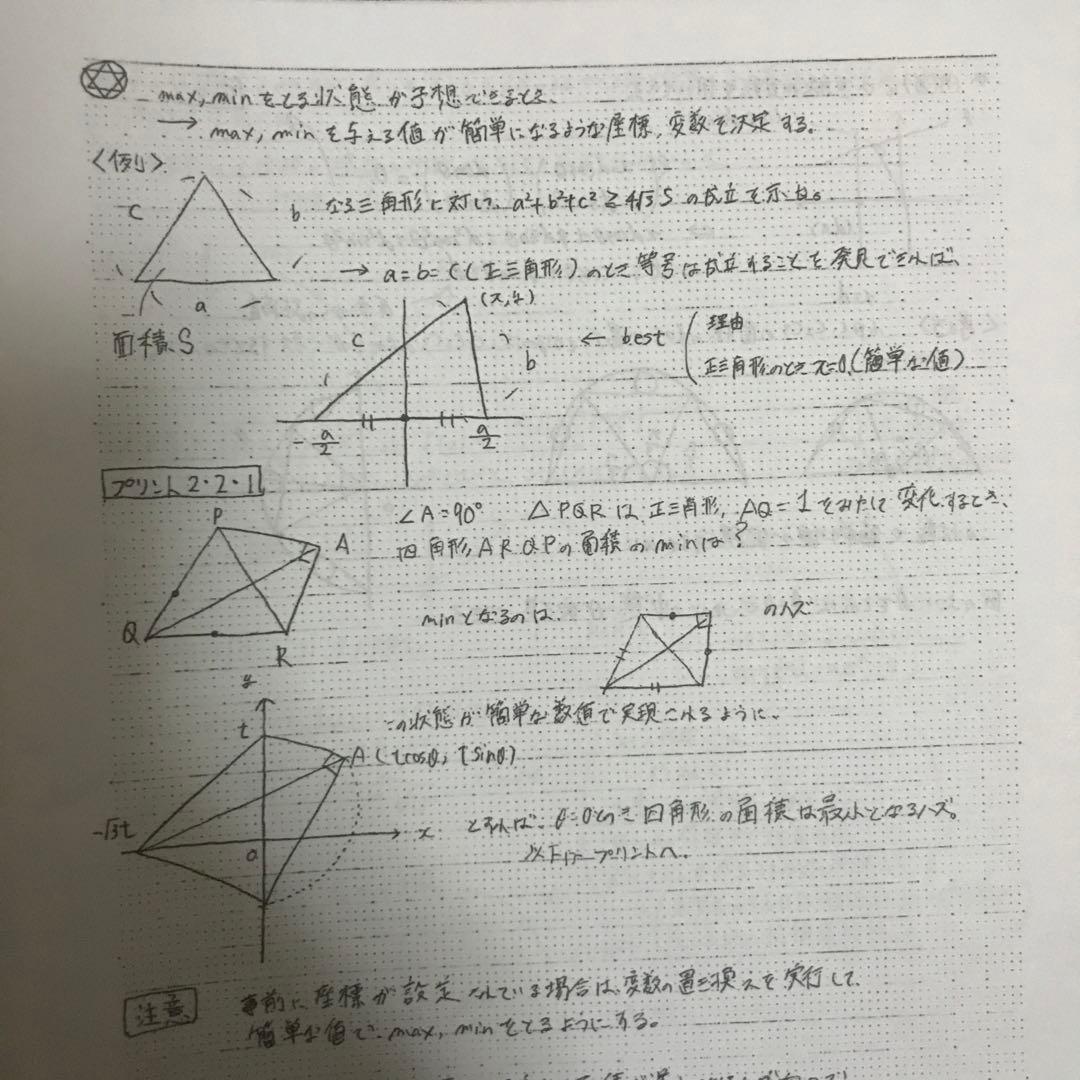 max, minをとる状態が予想できるとき、
→ max, minを与える値が簡単になるような座標、変数を決定する。
<例>
c
b
a
面積S
なる三角形に対して、a²+b²+c² ≧ 4√3 S の成立を示せ。
→ a=b=c (正三角形)のとき等号は成立することを発見できれば、
(x, y)
c
b
-a/2
a/2
← best
理由
正三角形のときx=0 (簡単な値)
プリント2・2・1
P
A
Q
R
∠A=90° △PQRは正三角形, AQ=1をみたして変化するとき、
四角形ARQPの面積のminは?
minとなるのは、
のハズ
この状態が簡単な数値で実現されるように。
y
t
A(tcosθ, tsinθ)
-√3t
x
0
とすれば、θ=0のとき四角形の面積は最小となるハズ。
以下はプリントへ。
注意
事前に座標が設定されている場合は、変数の置き換えを実行して、
簡単な値で、max, minをとるようにする。